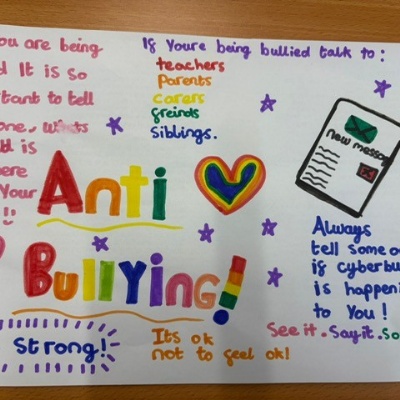 ou are being
d It is so
tant to tell
one, whats
ld is
ere
Your
!!
If Youre being bullied talk to:
teachers
Parents
carers
freinds
Siblings.
new messa
Anti
Bullying!
Always
tell some o
if cyberbu
is happeni
to You !
Strong!
Its ok
not to feel ok!
See it . Say it . So